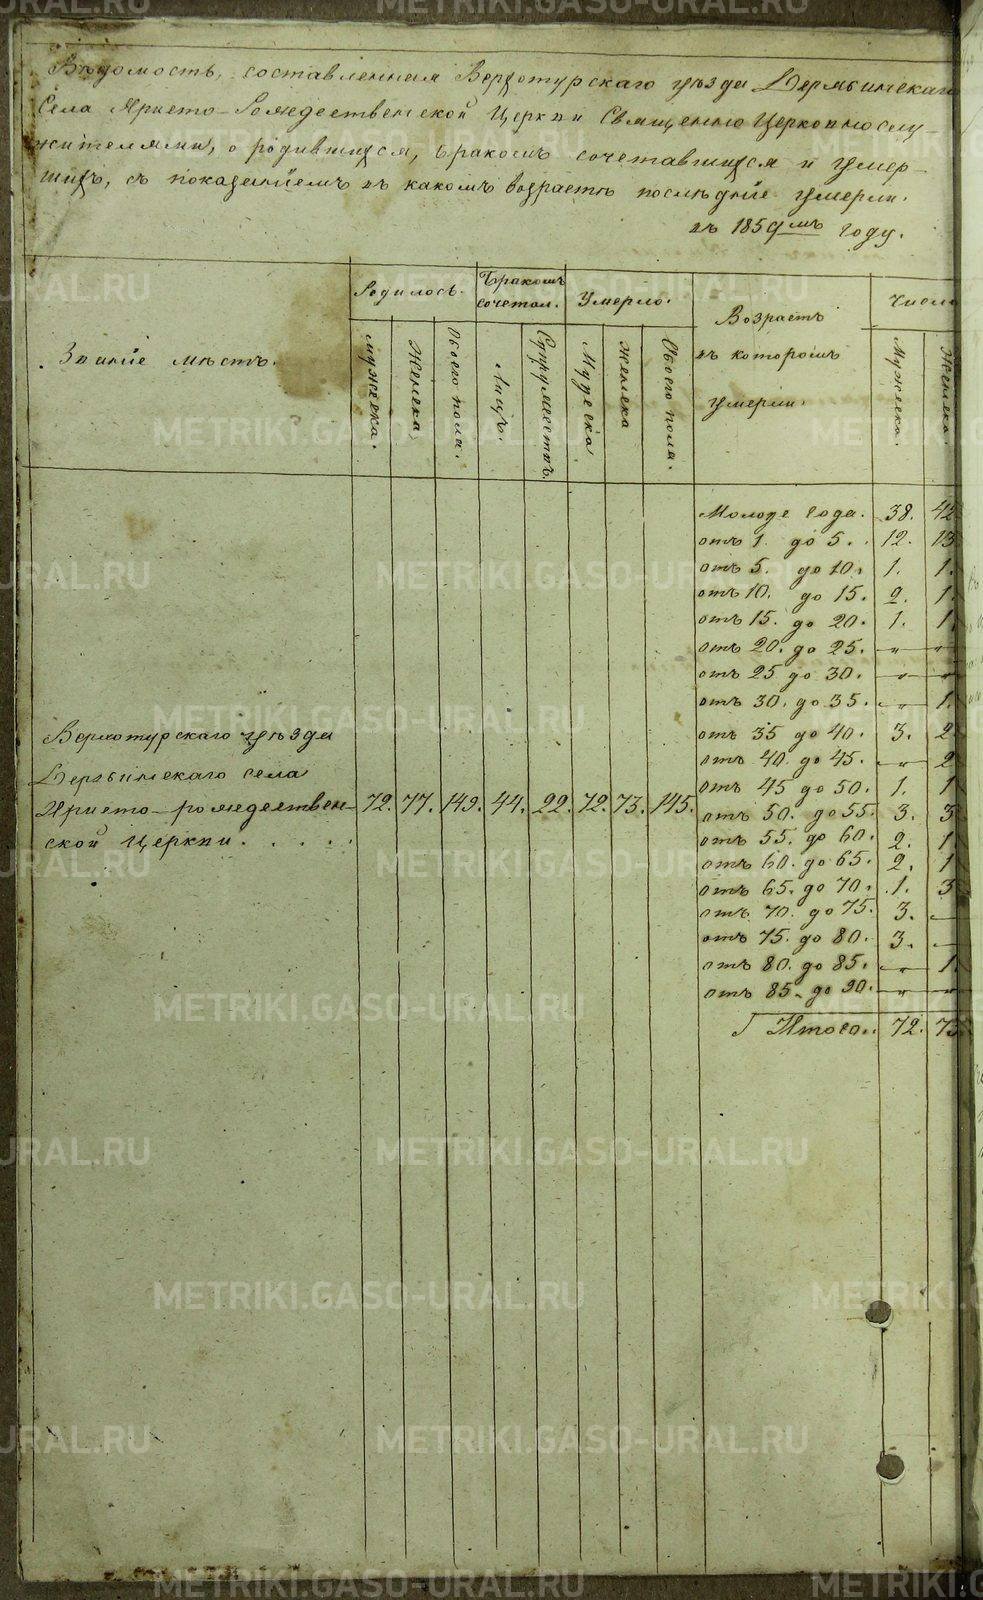 Вѣдомость, составленная Верхотурскаго уѣзда Дерябинскаго
Села Христо-Рождественской Церкви Священно Церковнослу-
жителями, о родившихся, бракомъ сочетавшихся и умер-
шихъ, съ показаніемъ въ какомъ возрастѣ послѣдніе умерли.
въ 1859мъ году.
Званіе мѣстъ.
Родилось.
Бракомъ сочетал.
Умерло.
Возрастъ
въ которомъ
умерли.
Число
Мужеска.
Женска.
Обоего пола.
Лицъ.
Супружествъ.
Мужеска
Женска
Обоего пола.
Мужеска.
Женска.
Моложе года. 38. 42
отъ 1. до 5. 12. 13
отъ 5. до 10. 1. 1.
отъ 10. до 15. 2. 1.
отъ 15. до 20. 1. 1
отъ 20. до 25. -„- -„-
отъ 25 до 30. -„- -„-
отъ 30. до 35. -„- 1.
отъ 35 до 40. 3. 2
отъ 40. до 45. -„- 2
отъ 45 до 50. 1. 1
отъ 50. до 55. 3. 3
отъ 55. до 60. 2. 1
отъ 60. до 65. 2. 1
отъ 65. до 70. 1. 3
отъ 70. до 75. 3. -
отъ 75. до 80. 3. -
отъ 80. до 85. -„- 1.
отъ 85. до 90. -„- -„-
Итого. 72. 73
Верхотурскаго уѣзда
Дерябинскаго села
Христо-рождествен- 72. 77. 149. 44. 22. 72. 73. 145.
ской Церкви. . . . .
METRIKI.GASO-URAL.RU